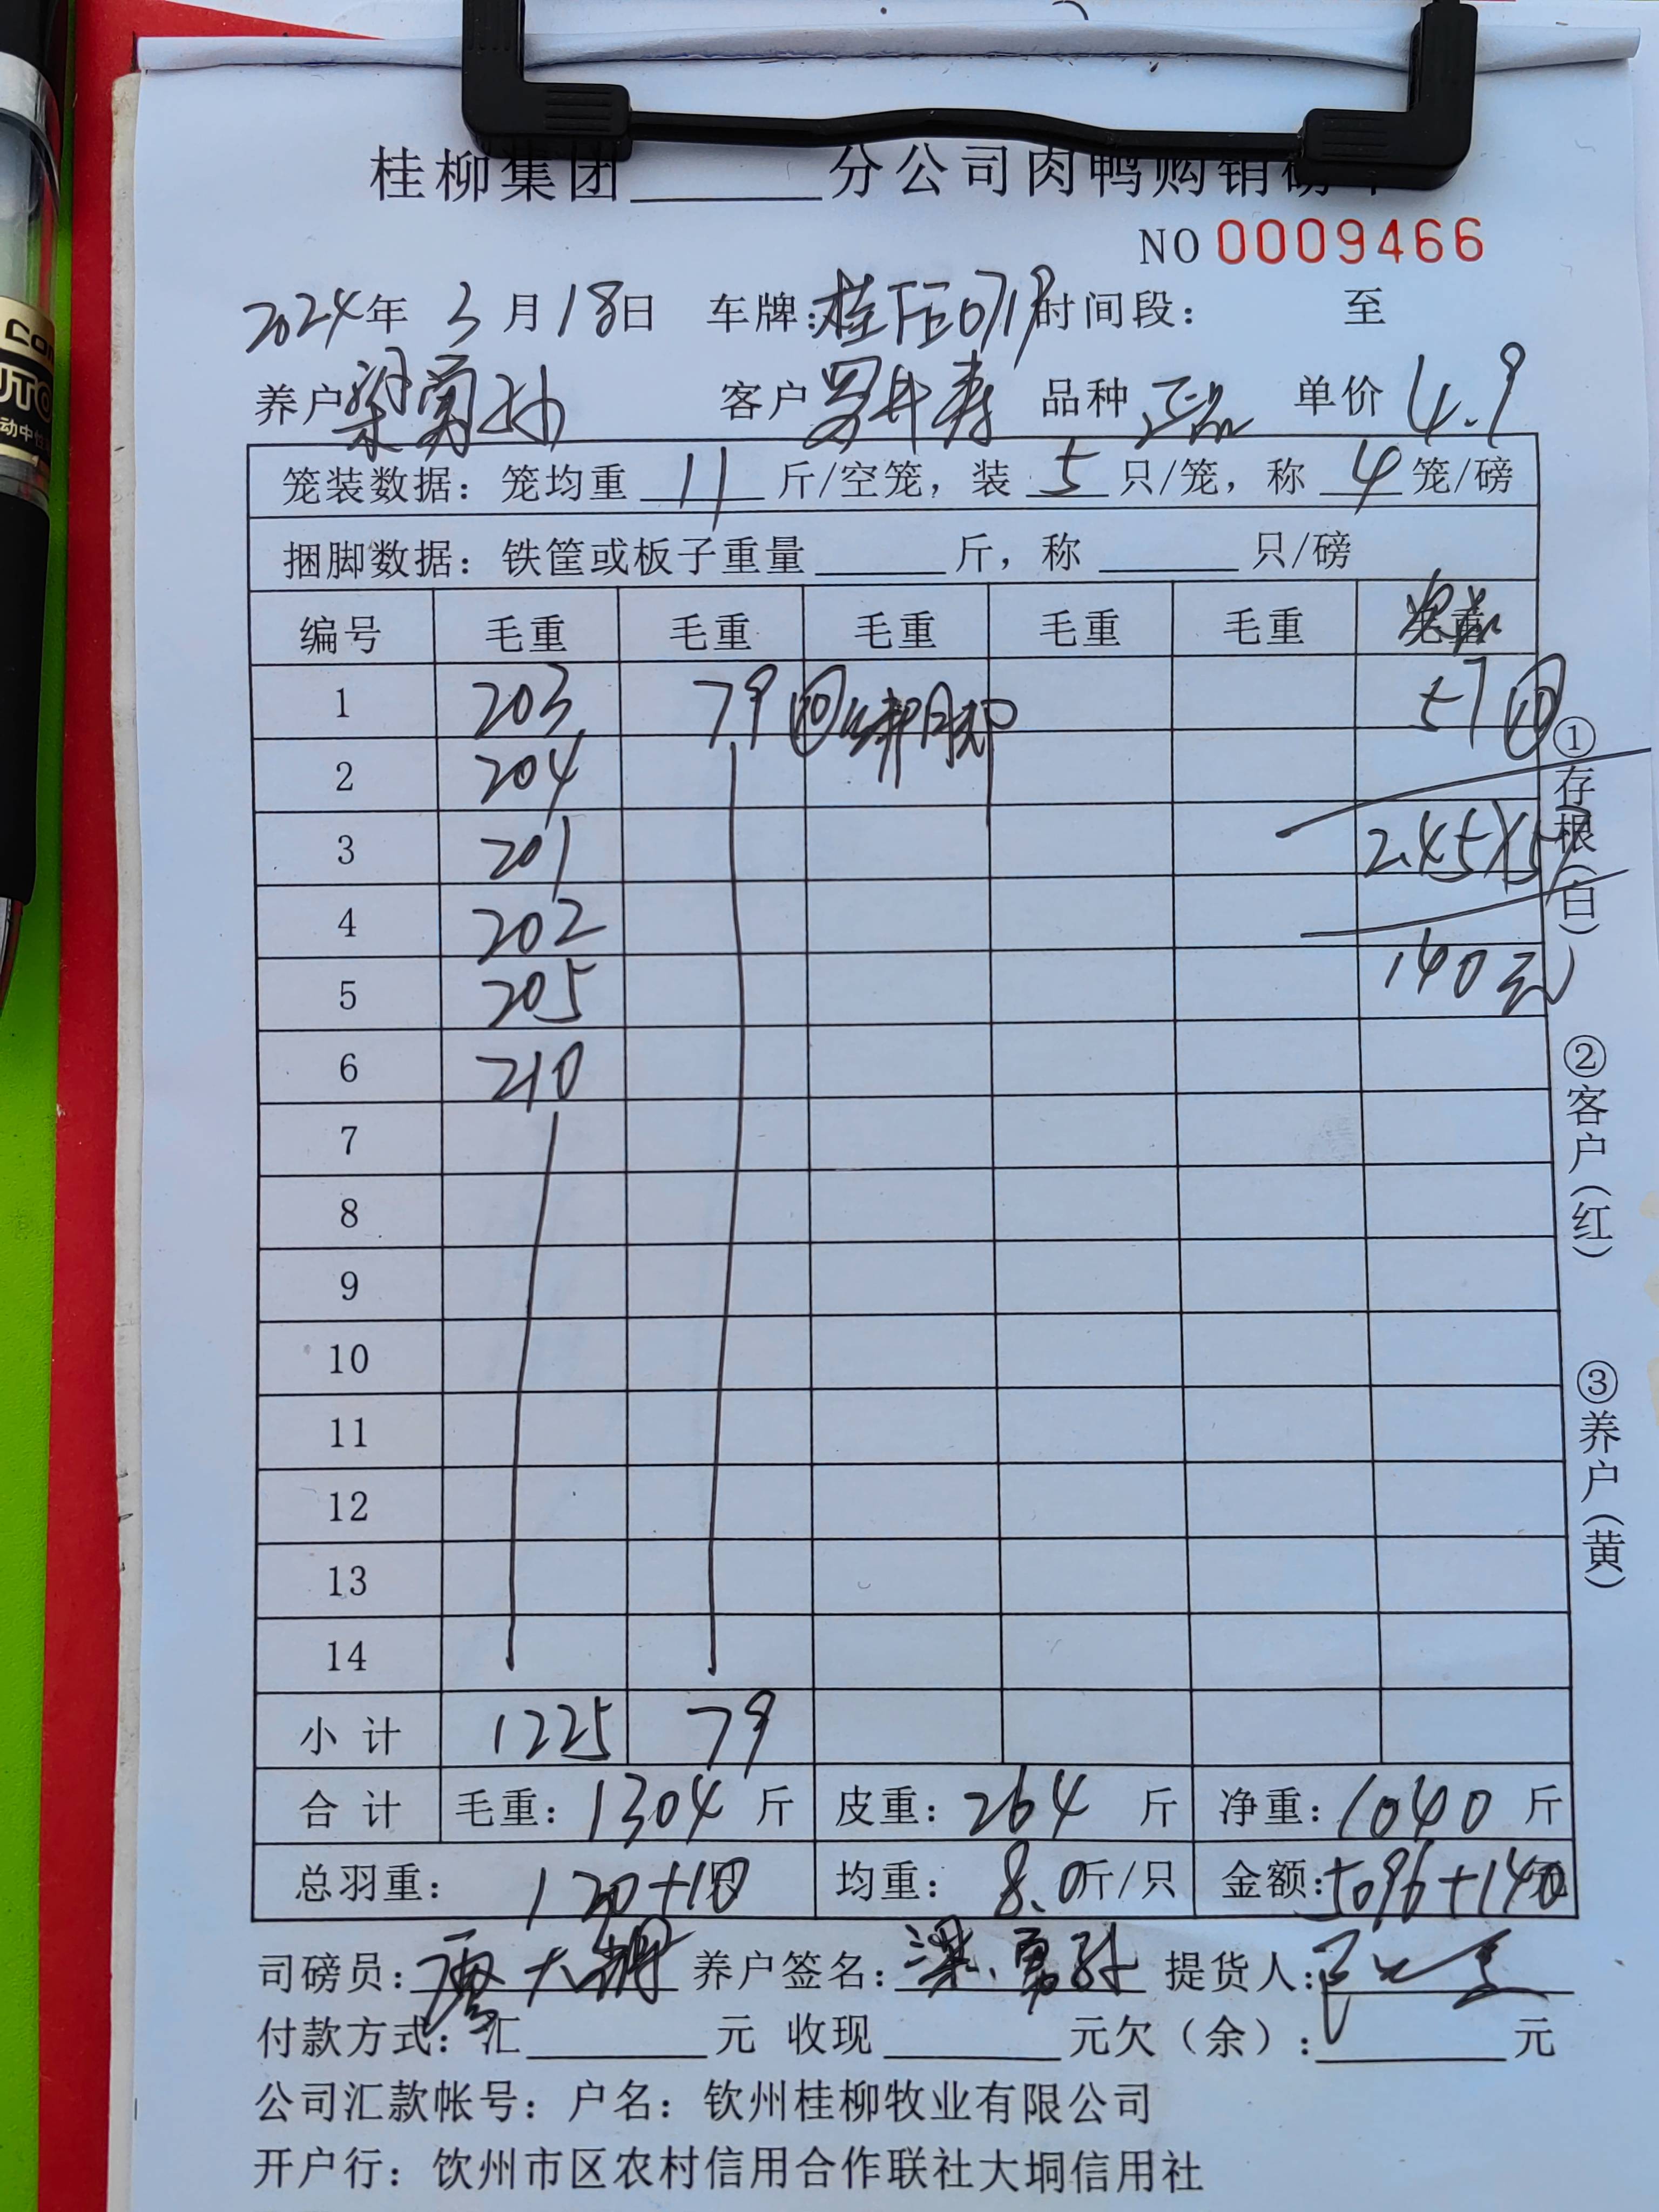 桂柳集团______分公司肉鸭购销磅单
NO 0009466
2024年 3月18日 车牌: 时间段: 至
养户 梁勇孙 客户 品种 正品 单价 4.9
笼装数据:笼均重 11 斤/空笼,装 5 只/笼,称 4 笼/磅
捆脚数据:铁筐或板子重量______斤,称______只/磅
编号 毛重 毛重 毛重 毛重 毛重
1 203 79 ⑩ 绑脚 57 ⑩
2 204
3 201 2.45×57
4 202
5 205 140元
6 210
7
8
9
10
11
12
13
14
小计 1225 79
合计 毛重:1304 斤 皮重:264 斤 净重:1040 斤
总羽重: 120+10 均重: 8.0斤/只 金额:5096+140
司磅员:廖大 养户签名:梁勇孙 提货人:
付款方式:汇______元 收现______元欠(余):______元
公司汇款帐号:户名:钦州桂柳牧业有限公司
开户行:钦州市区农村信用合作联社大垌信用社
①存根(白)
②客户(红)
③养户(黄)